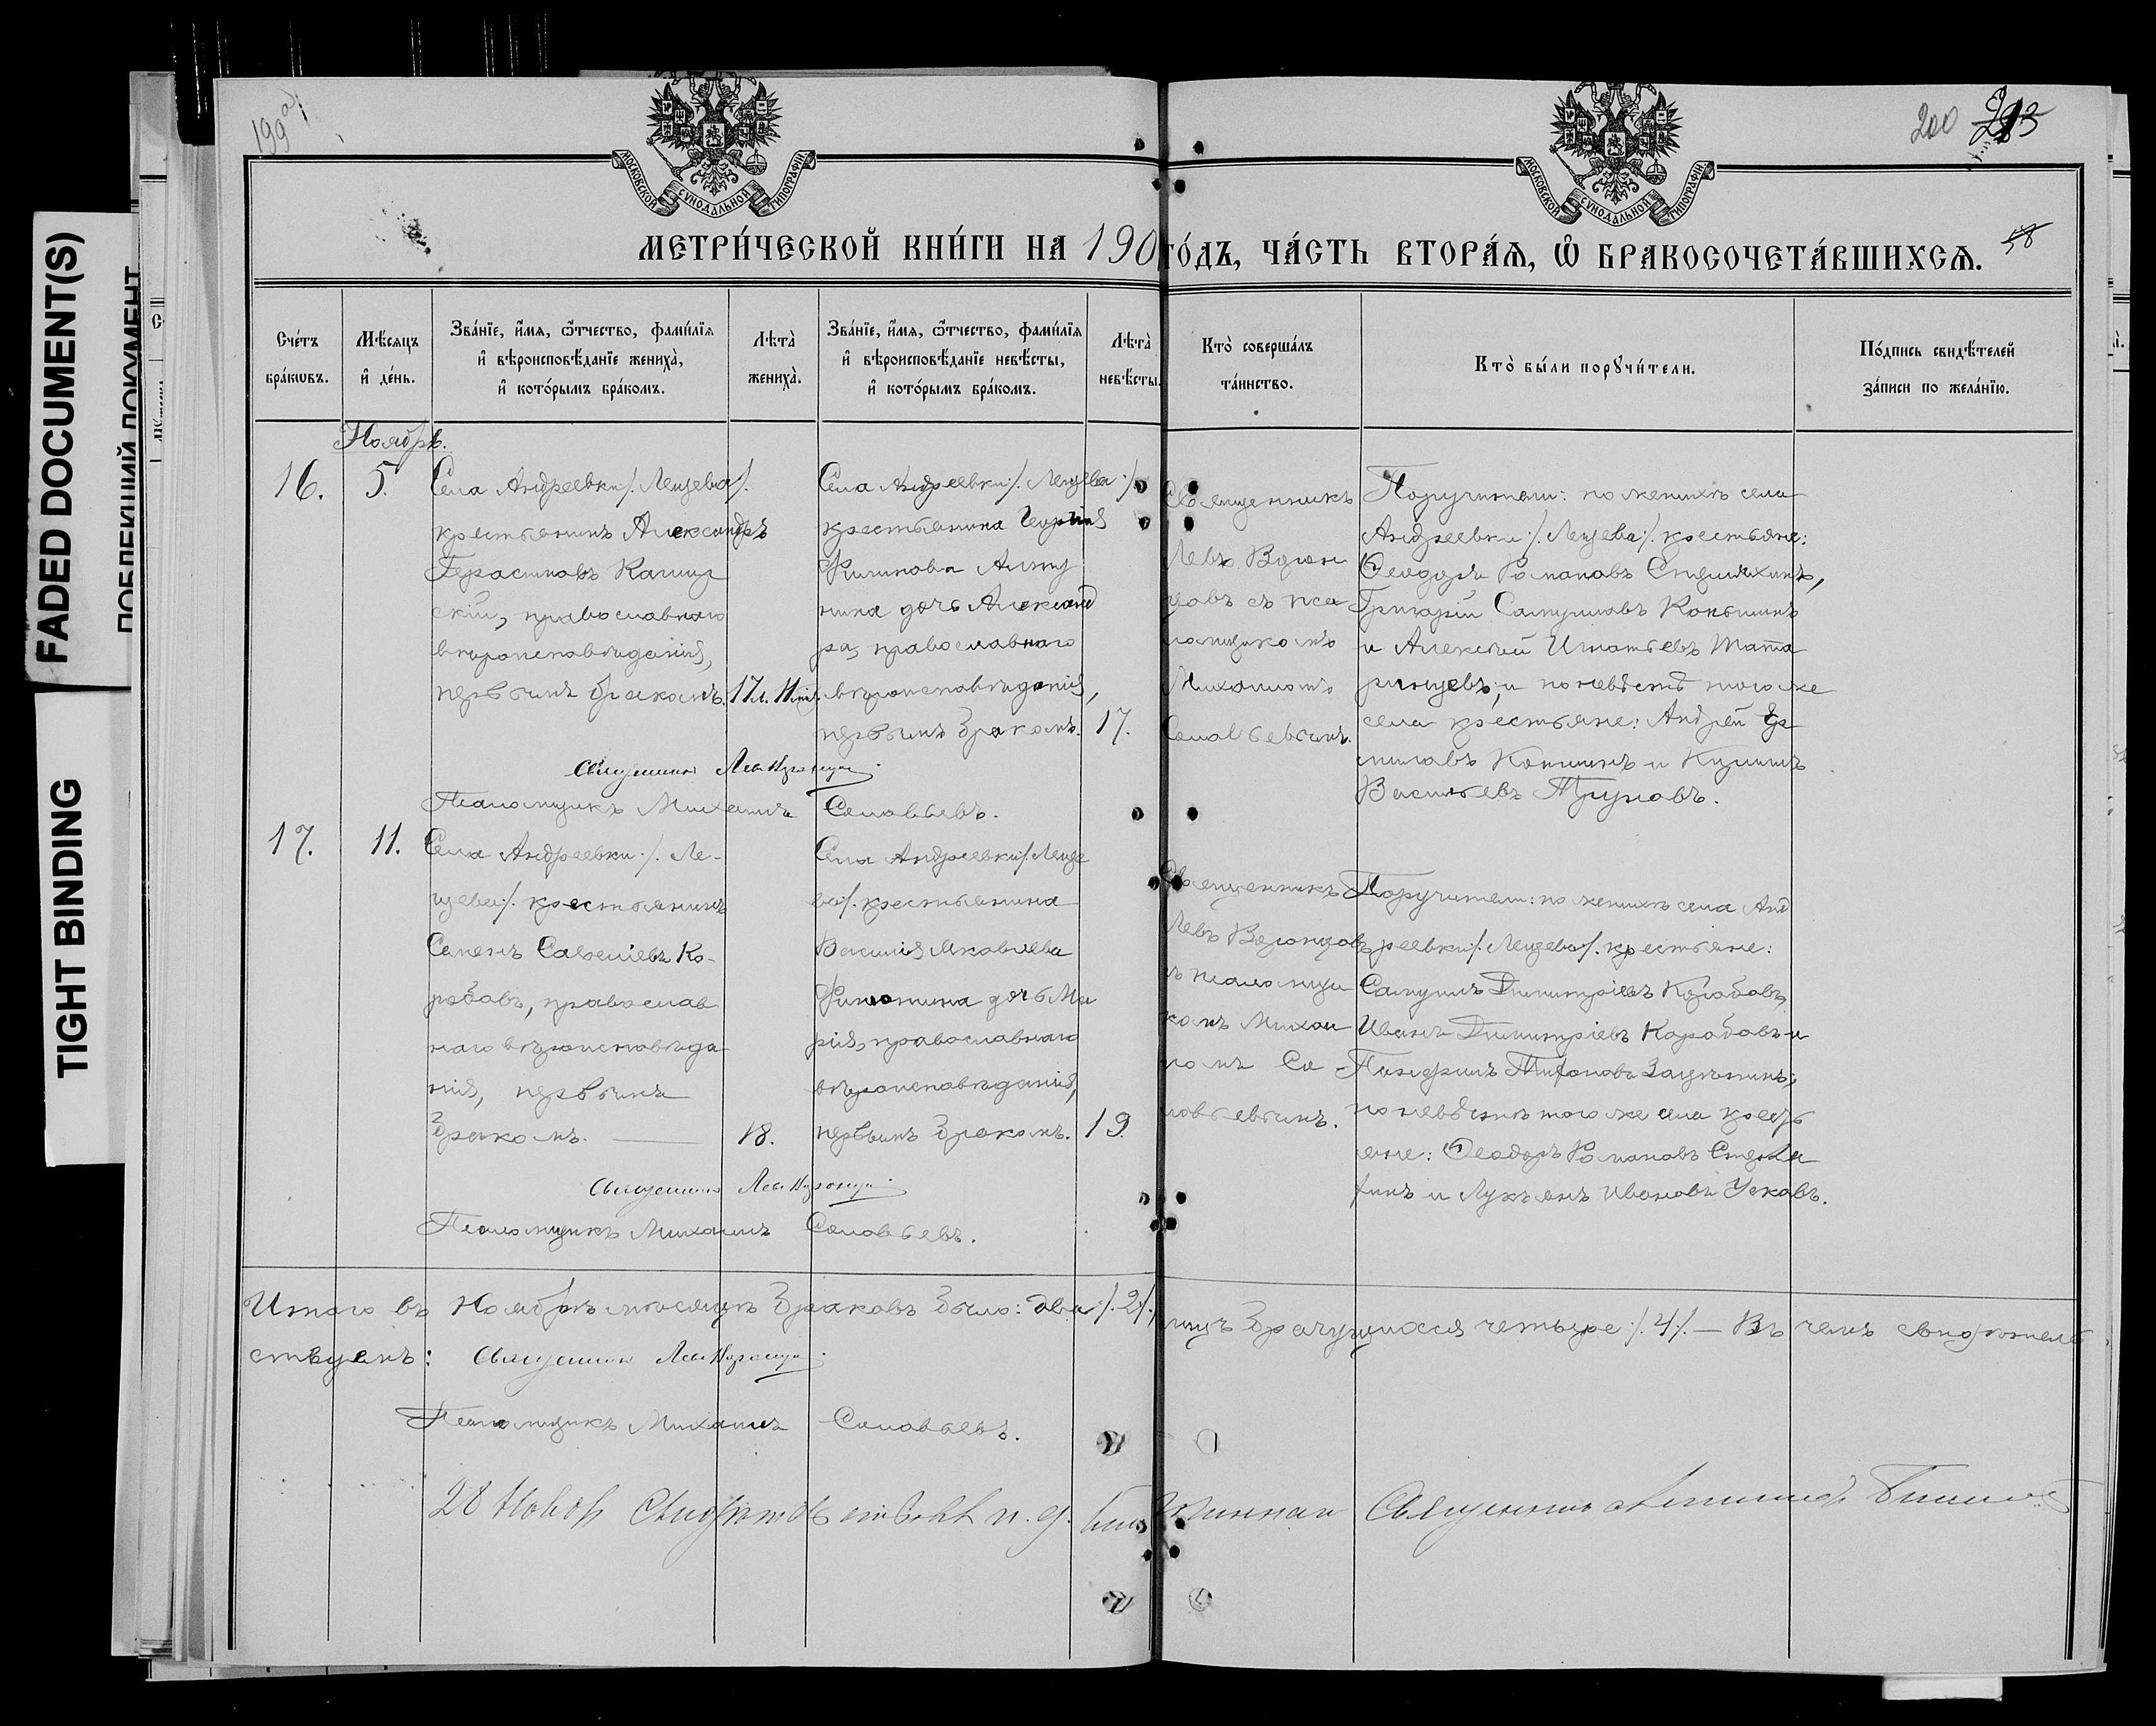 FADED DOCUMENT(S)
TIGHT BINDING
199а
200 213
58
МОСКОВСКОЙ СѴНОДАЛЬНОЙ ТИПОГРАФІИ
МОСКОВСКОЙ СѴНОДАЛЬНОЙ ТИПОГРАФІИ
МЕТРИ́ЧЕСКОЙ КНИ́ГИ НА 190
ГО́ДЪ, ЧА́СТЬ ВТОРА́Ѧ, Ѽ БРАКОСОЧЕТА́ВШИХСѦ.
Сче́тъ
бра́кѡвъ.
Мѣ́сѧцъ
и҆ де́нь.
Зва́нїе, и҆́мѧ, ѻ҆́тчество, фами́лїѧ
и҆ вѣроисповѣ́данїе жениха̀,
и҆ кото́рымъ бра́комъ.
Лѣта̀
жениха̀.
Зва́нїе, и҆́мѧ, ѻ҆́тчество, фами́лїѧ
и҆ вѣроисповѣ́данїе невѣ́сты,
и҆ кото́рымъ бра́комъ.
Лѣта̀
невѣ́сты.
Кто̀ соверша́лъ
та́инство.
Кто̀ бы́ли порꙋчи́тели.
По́дпись свидѣ́телей
за́писи по жела́нїю.
Ноябрь.
16.
5.
Села Андреевки /. Лещева /.
крестьянинъ Александръ
Герасимовъ
скій, православнаго
вѣроисповѣданія,
первымъ бракомъ.
17 л. 11 м.
Села Андреевки /. Лещева ./.
крестьянина Георгія
Филипова
нина дочь Александ
ра, православнаго
вѣроисповѣданія,
первымъ бракомъ.
17.
Священникъ
Левъ Ворон
цовъ съ пса
ломщикомъ
Михаиломъ
Соловьевымъ.
Поручители: по женихѣ села
Андреевки ./. Лещева ./. крестьяне:
Ѳеодоръ Романовъ
Григорій Самуиловъ
и Алексѣй Игнатьевъ Тата
ринцевъ; и по невѣстѣ того же
села крестьяне: Андрей
Васильевъ Труновъ.
Священникъ Левъ Воронцовъ
Псаломщикъ Михаилъ Соловьевъ.
17.
11.
Села Андреевки ./. Ле-
щева /. крестьянинъ
Семенъ Савеліевъ Ко-
робовъ, православ
наго вѣроисповѣда
нія, первымъ
бракомъ.
18.
Села Андреевки /. Леще
ва /. крестьянина
Василія Яковлева
дочь Ма
рія, православнаго
вѣроисповѣданія,
первымъ бракомъ.
19.
Священникъ
Левъ Воронцовъ
съ псаломщи
комъ Михаи
ломъ Со
ловьевымъ.
Поручители: по женихѣ села Анд
реевки /. Лещева /. крестьяне:
Самуилъ Димитріевъ Коробовъ,
Иванъ Димитріевъ Коробовъ и
по невѣстѣ того же села кресть
яне: Ѳеодоръ Романовъ
и Лукьянъ Ивановъ Усковъ.
Священникъ Левъ Воронцовъ
Псаломщикъ Михаилъ Соловьевъ.
Итого въ Ноябрѣ мѣсяцѣ браковъ было: два /. 2 /. лицъ брачущихся четыре /. 4 /. — Въ чемъ свидѣтель
ствуемъ: Священникъ Левъ Воронцовъ
Псаломщикъ Михаилъ Соловьевъ.
28 Священникъ